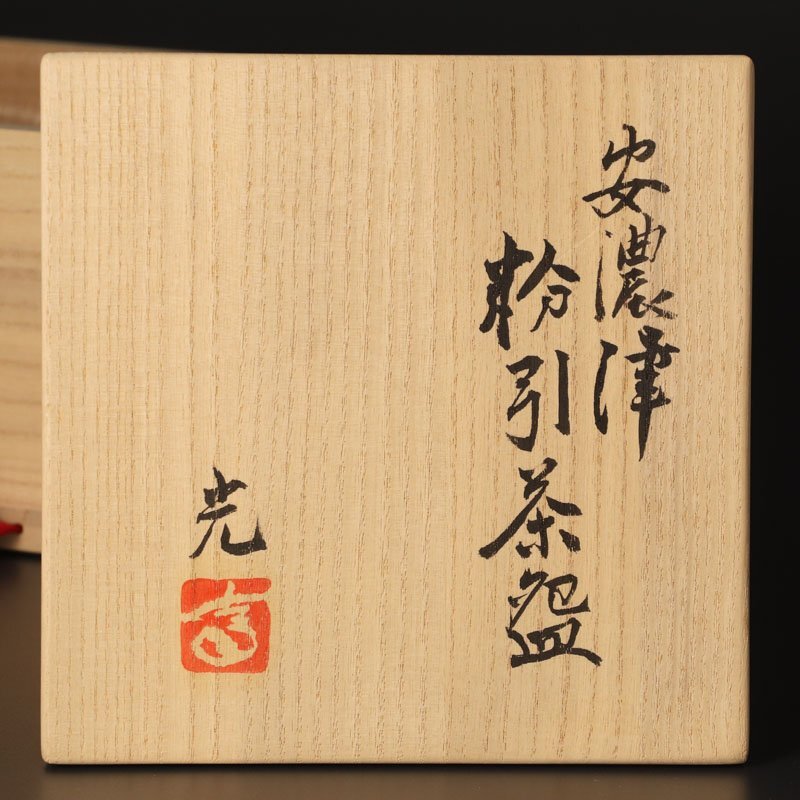 安濃津
粉引茶盌
光